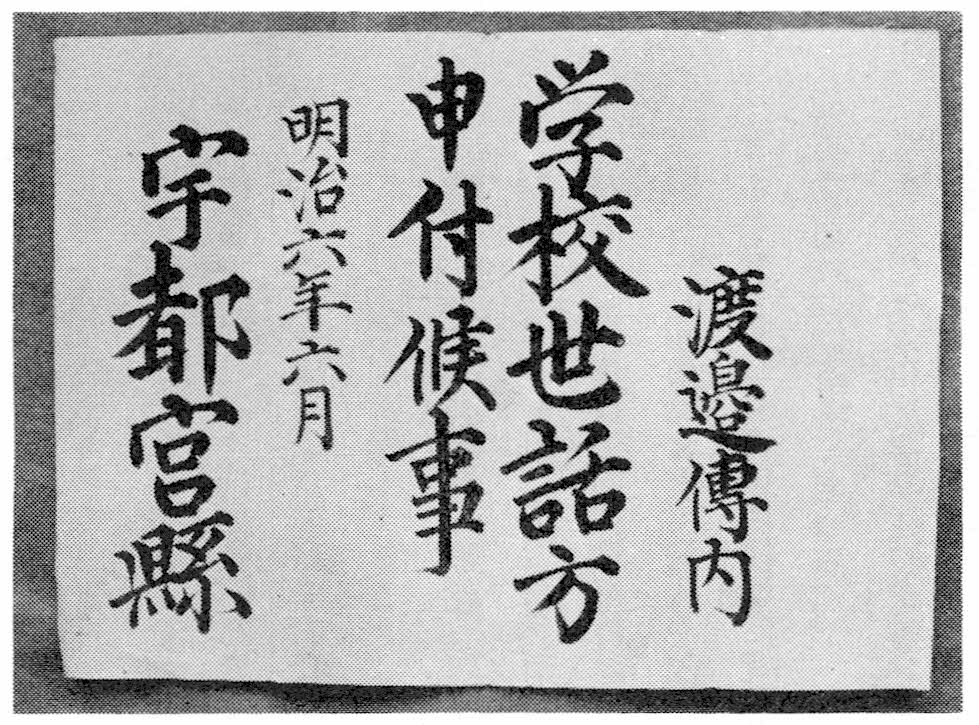 渡邉傳内
学校世話方
申付候事
明治六年六月
宇都宮縣